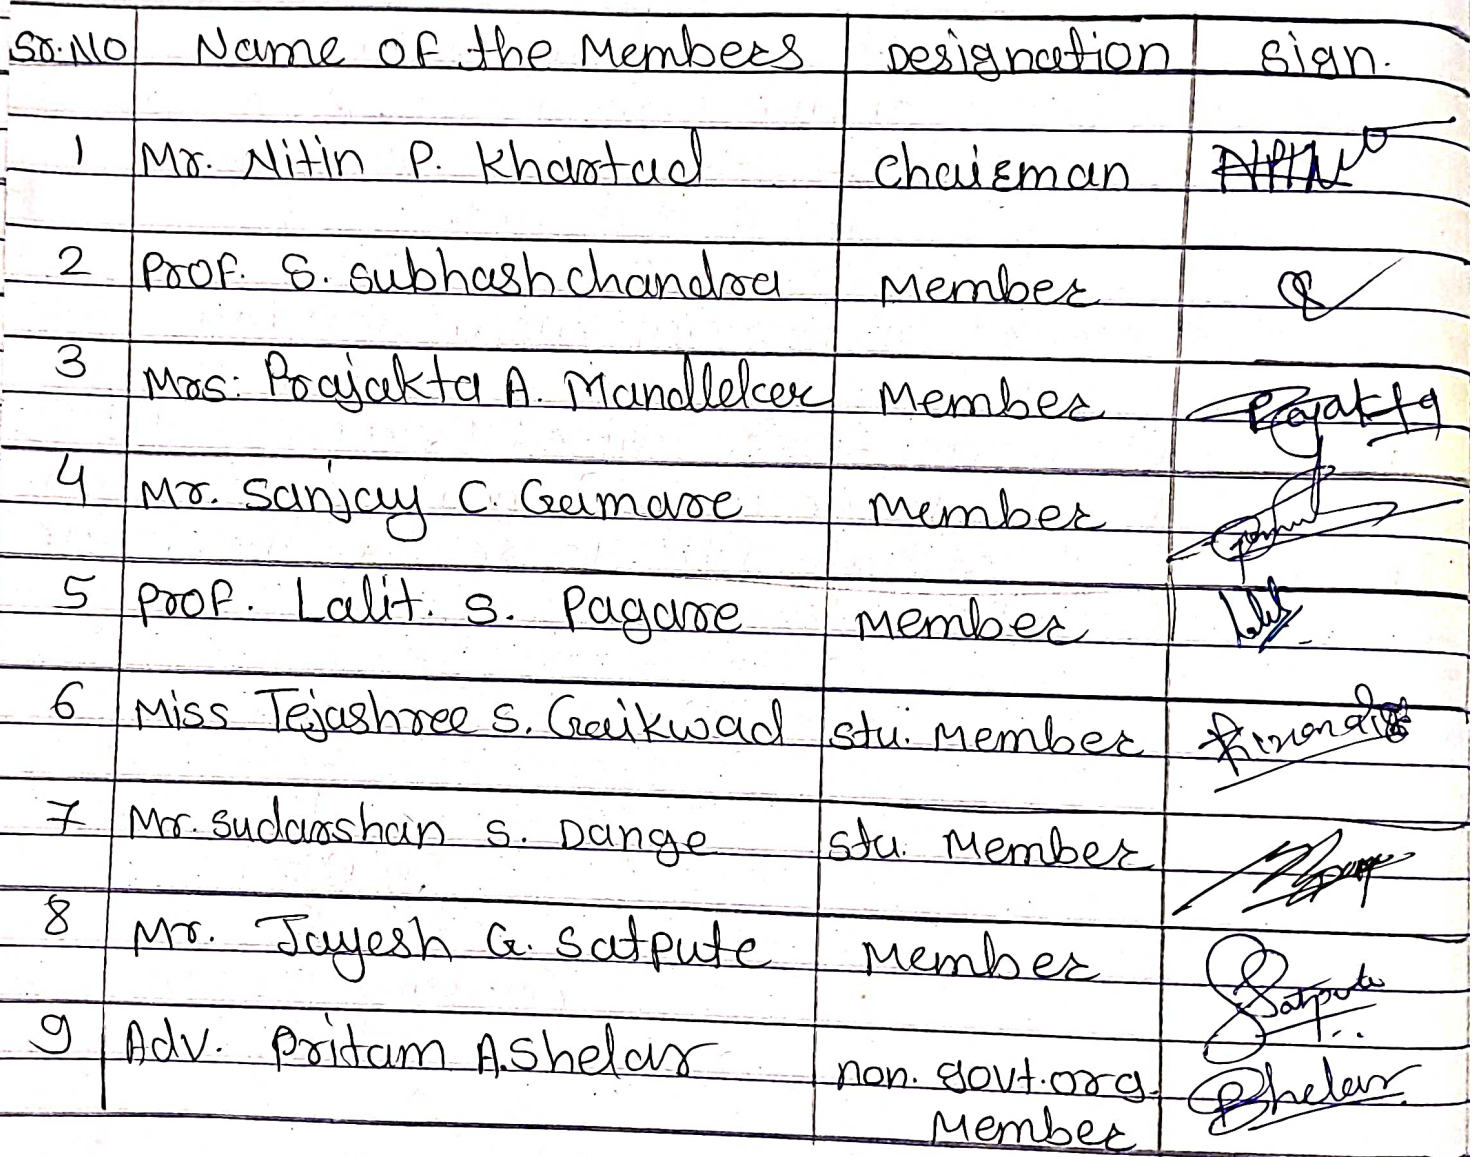 Sr.No Name of the Members Designation Sign.
1 Mr. Nitin P. Khartad Chairman
2 Prof. S. Subhash chandra Member
3 Mrs. Prajakta A. Mandlekar Member Prajakta
4 Mr. Sanjay C. Gamare Member
5 Prof. Lalit. S. Pagare Member
6 Miss Tejashree S. Gaikwad Stu. Member
7 Mr. Sudarshan S. Dange Stu. Member
8 Mr. Jayesh G. Satpute Member Satpute
9 Adv. Pritam A. Shelar non. govt. org. Shelar
Member